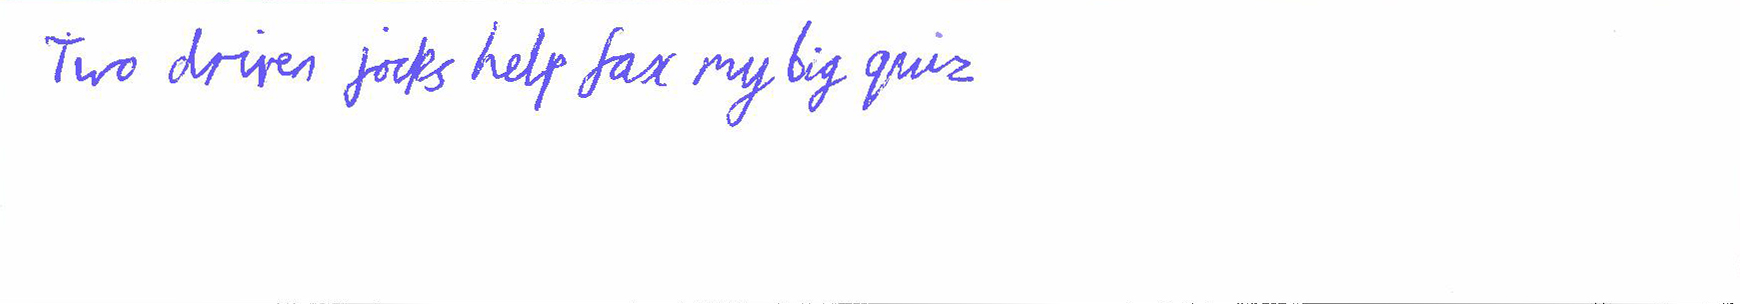 Two driven jocks help fax my big quiz